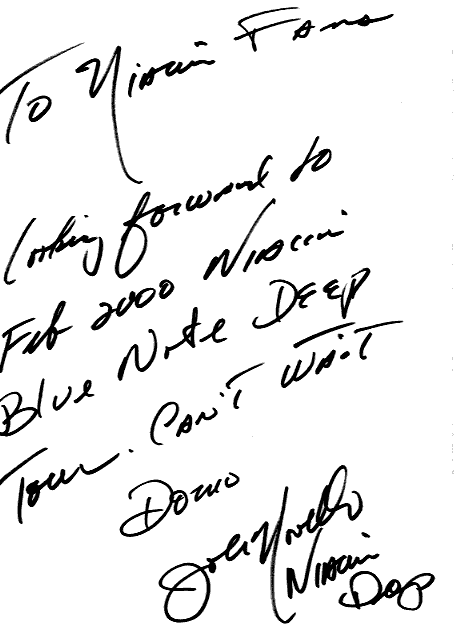 To Niacin Fans
Looking forward to
Feb 2000 Niacin
Blue Note DEEP
Tour. CAN'T WAIT
Domo
John Novello
Niacin
Deep